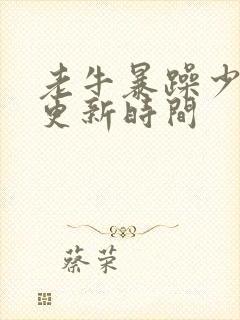 老牛暴躁少
更新時間
蔡荣